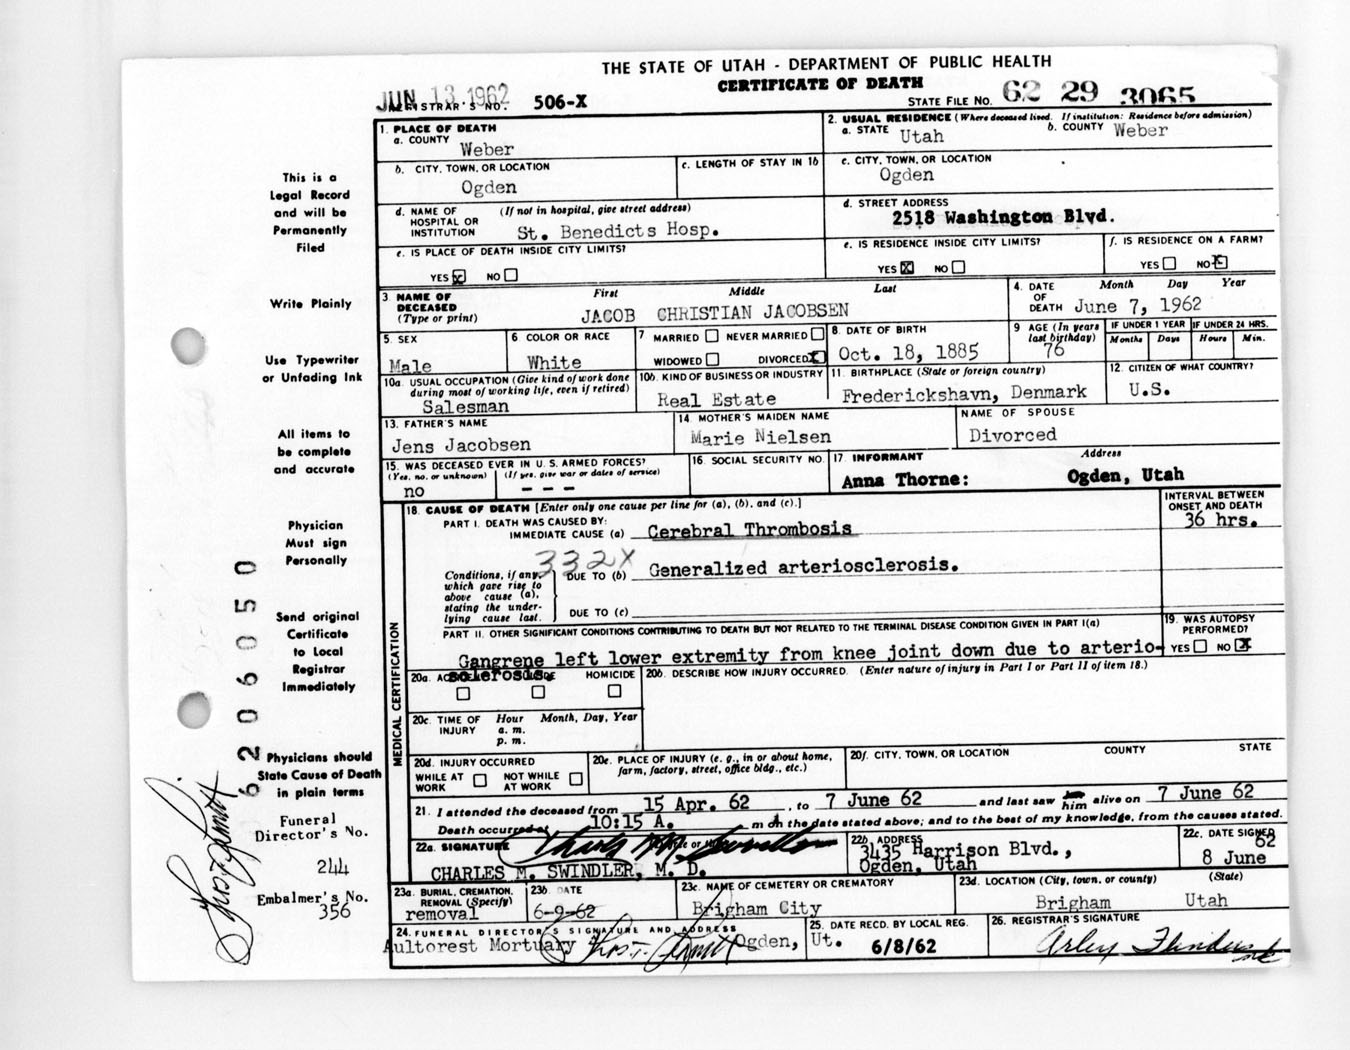 THE STATE OF UTAH - DEPARTMENT OF PUBLIC HEALTH
CERTIFICATE OF DEATH
JUN 13 1962
REGISTRAR'S NO. 506-X
STATE FILE NO. 62 29 3065
1. PLACE OF DEATH
a. COUNTY Weber
2. USUAL RESIDENCE (Where deceased lived. If institution: Residence before admission)
a. STATE Utah b. COUNTY Weber
b. CITY, TOWN, OR LOCATION
Ogden
c. LENGTH OF STAY IN 1b
c. CITY, TOWN, OR LOCATION
Ogden
d. NAME OF HOSPITAL OR INSTITUTION (If not in hospital, give street address)
St. Benedicts Hosp.
d. STREET ADDRESS
2518 Washington Blvd.
e. IS PLACE OF DEATH INSIDE CITY LIMITS?
YES X NO
e. IS RESIDENCE INSIDE CITY LIMITS?
YES X NO
f. IS RESIDENCE ON A FARM?
YES NO X
3. NAME OF DECEASED (Type or print)
First Middle Last
JACOB CHRISTIAN JACOBSEN
4. DATE OF DEATH Month Day Year
June 7, 1962
5. SEX
Male
6 COLOR OR RACE
White
7 MARRIED NEVER MARRIED
WIDOWED DIVORCED X
8. DATE OF BIRTH
Oct. 18, 1885
9 AGE (In years last birthday)
76
IF UNDER 1 YEAR IF UNDER 24 HRS.
Months Days Hours Min.
10a. USUAL OCCUPATION (Give kind of work done during most of working life, even if retired)
Salesman
10b. KIND OF BUSINESS OR INDUSTRY
Real Estate
11. BIRTHPLACE (State or foreign country)
Frederickshavn, Denmark
12. CITIZEN OF WHAT COUNTRY?
U.S.
13. FATHER'S NAME
Jens Jacobsen
14. MOTHER'S MAIDEN NAME
Marie Nielsen
NAME OF SPOUSE
Divorced
15. WAS DECEASED EVER IN U.S. ARMED FORCES?
(Yes, no, or unknown) (If yes, give war or dates of service)
no - - -
16. SOCIAL SECURITY NO.
17. INFORMANT Address
Anna Thorne: Ogden, Utah
MEDICAL CERTIFICATION
18. CAUSE OF DEATH [Enter only one cause per line for (a), (b), and (c).]
INTERVAL BETWEEN ONSET AND DEATH
PART I. DEATH WAS CAUSED BY:
IMMEDIATE CAUSE (a) Cerebral Thrombosis
36 hrs.
332X
Conditions, if any, which gave rise to above cause (a), stating the underlying cause last.
DUE TO (b) Generalized arteriosclerosis.
DUE TO (c)
PART II. OTHER SIGNIFICANT CONDITIONS CONTRIBUTING TO DEATH BUT NOT RELATED TO THE TERMINAL DISEASE CONDITION GIVEN IN PART I(a)
Gangrene left lower extremity from knee joint down due to arterio-
sclerosis.
19. WAS AUTOPSY PERFORMED?
YES NO X
20a. ACCIDENT SUICIDE HOMICIDE
20b. DESCRIBE HOW INJURY OCCURRED. (Enter nature of injury in Part I or Part II of item 18.)
20c. TIME OF INJURY Hour Month, Day, Year
a. m.
p. m.
20d. INJURY OCCURRED
WHILE AT WORK NOT WHILE AT WORK
20e. PLACE OF INJURY (e. g., in or about home, farm, factory, street, office bldg., etc.)
20f. CITY, TOWN, OR LOCATION COUNTY STATE
21. I attended the deceased from 15 Apr. 62, to 7 June 62 and last saw him alive on 7 June 62
Death occurred at 10:15 A. m on the date stated above; and to the best of my knowledge, from the causes stated.
22a. SIGNATURE (Degree or title)
CHARLES M. SWINDLER, M. D.
22b. ADDRESS
3435 Harrison Blvd.,
Ogden, Utah
22c. DATE SIGNED
8 June 62
23a. BURIAL, CREMATION, REMOVAL (Specify)
removal
23b. DATE
6-9-62
23c. NAME OF CEMETERY OR CREMATORY
Brigham City
23d. LOCATION (City, town, or county) (State)
Brigham Utah
24. FUNERAL DIRECTOR'S SIGNATURE AND ADDRESS
Aultorest Mortuary Ogden, Ut.
25. DATE RECD. BY LOCAL REG.
6/8/62
26. REGISTRAR'S SIGNATURE
Arley Flinders
This is a
Legal Record
and will be
Permanently
Filed
Write Plainly
Use Typewriter
or Unfading Ink
All items to
be complete
and accurate
Physician
Must sign
Personally
Send original
Certificate
to Local
Registrar
Immediately
Physicians should
State Cause of Death
in plain terms
Funeral
Director's No.
244
Embalmer's No.
356
6206050